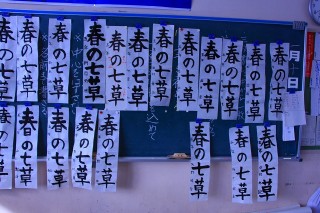 春の七草
春の七草
春の七草
春の七草
春の七草
春の七草
春の七草
春の七草
春の七草
春の七草
春の七草
月
日
込めて
春の七草
春の七草
春の七草
春の七草
春の七草
春の七草
春の七草
春の七草